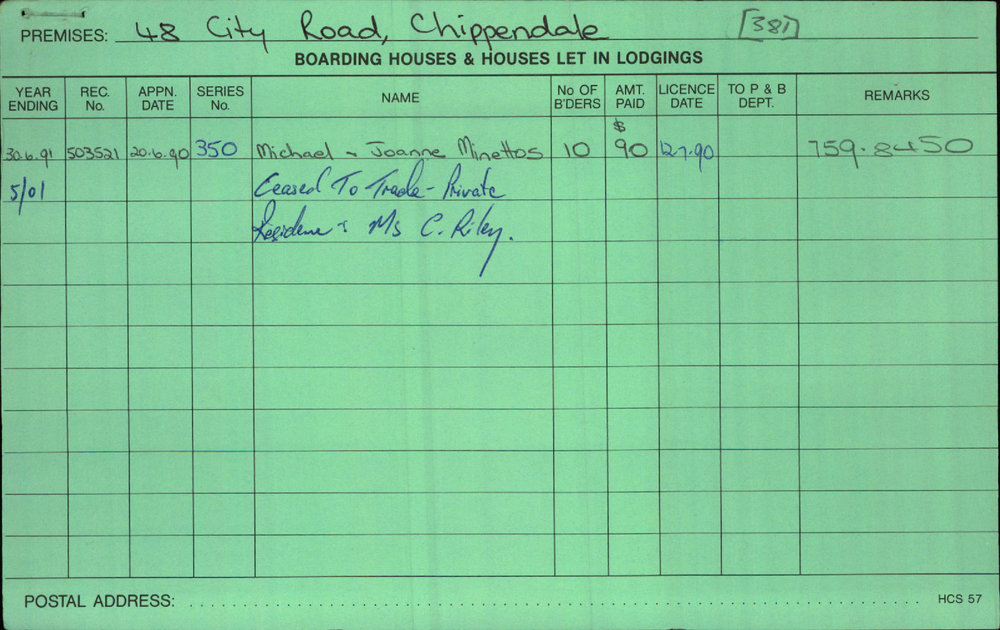 PREMISES: 48 City Road, Chippendale [381]
BOARDING HOUSES & HOUSES LET IN LODGINGS
YEAR ENDING REC. No. APPN. DATE SERIES No. NAME No OF B'DERS AMT. PAID LICENCE DATE TO P & B DEPT. REMARKS
$
30.6.91 503521 20.6.90 350 Michael & Joanne Minettos 10 90 12.7.90 759.8450
5/01 Ceased To Trade - Private
Residence : Ms C. Riley.
POSTAL ADDRESS:
HCS 57